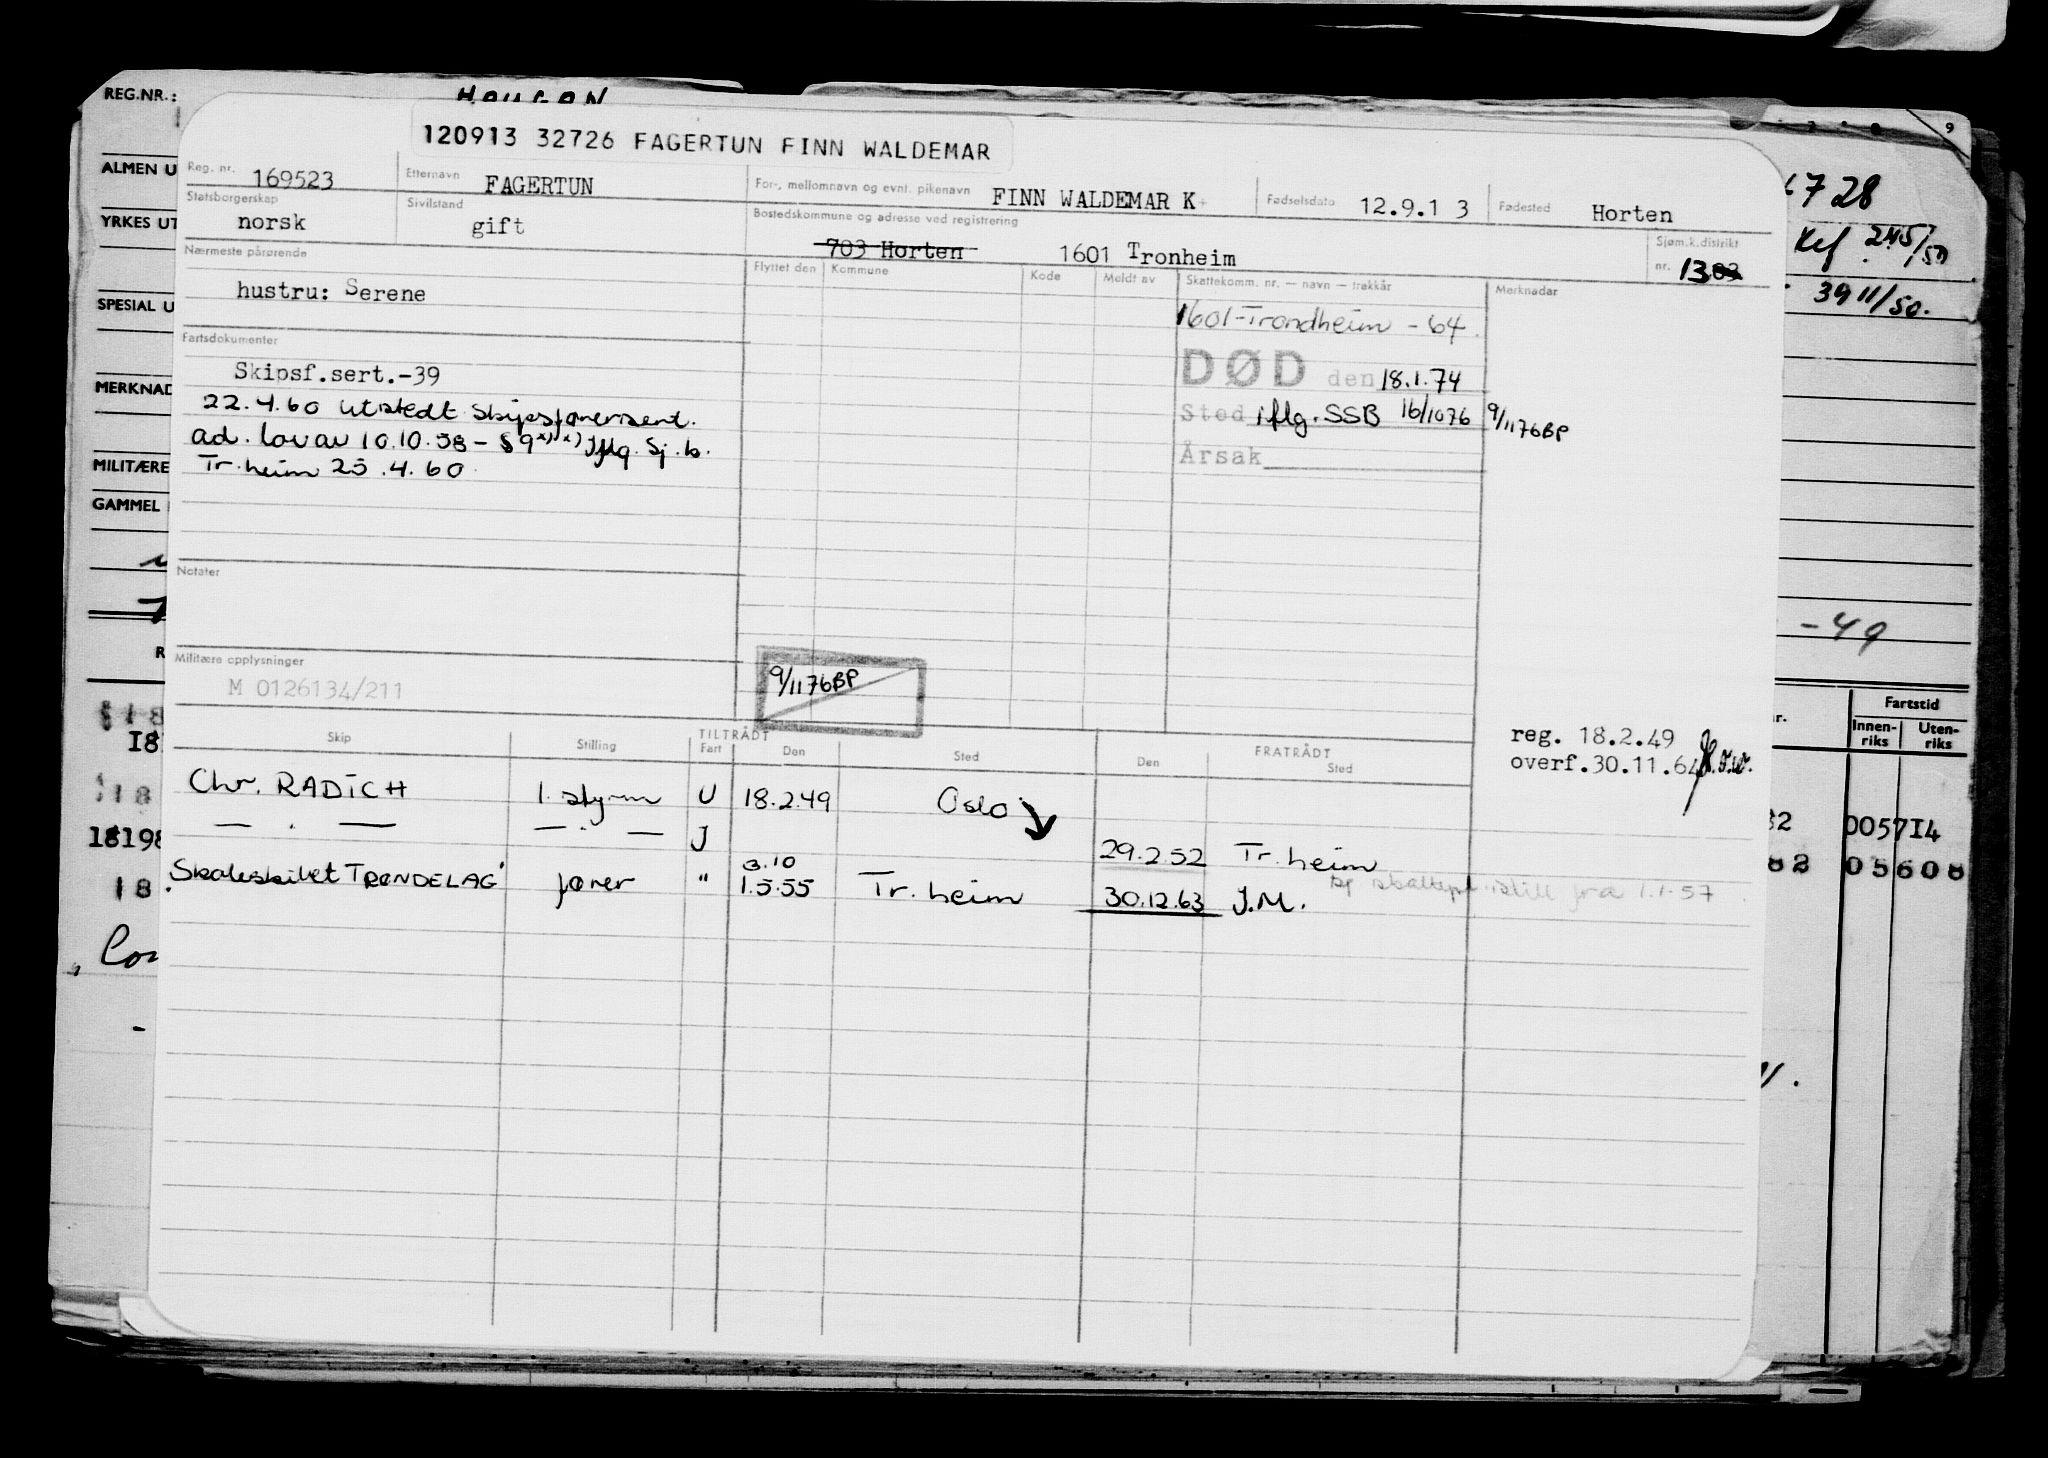 REG.NR.:
HAUGAN
120913 32726 FAGERTUN FINN WALDEMAR
Reg. nr. 169523 Etternavn FAGERTUN For-, mellomnavn og evnt. pikenavn FINN WALDEMAR K Fødselsdato 12.9.1 3 Fødested Horten
Statsborgerskap norsk Sivilstand gift Bostedskommune og adresse ved registrering 703 Horten 1601 Tronheim Sjøm.k.distrikt nr. 13 03
Nærmeste pårørende Flyttet den Kommune Kode Meldt av Skattekomm. nr. — navn — trekkår Merknader
hustru: Serene
1601-Trondheim - 64.
Fartsdokumenter
DØD den 18.1.74
Skipsf.sert.-39
Sted iflg. SSB 16/1076 9/1176BP
22.4.60 utstedt skipsførersert.
ad. lov av 10.10.58 - § 9 x) x) Iflg. Sj. b.
Årsak
Tr.heim 25.4.60
Notater
Militære opplysninger
M 0126134/211
9/1176BP
reg. 18.2.49
overf.30.11.64
Skip Stilling TILTRÅDT Fart Den Sted Den FRATRÅDT Sted
Chr. RADICH 1. styrm U 18.2.49 Oslo
— . — — . — J 29.2.52 Tr.heim
3.10
Skoleskibet TRØNDELAG fører " 1.5.55 Tr.heim 30.12.63 J.M.
fra 1.1.57
ALMEN U
YRKES UT
SPESIAL U
MERKNAD
MILITÆRE
GAMMEL
R
18
I8
18
18198
18
9
728
Kef 245/50
3911/50.
-49
r. Fartstid
Innen-riks Uten-riks
82 005714
82 05608